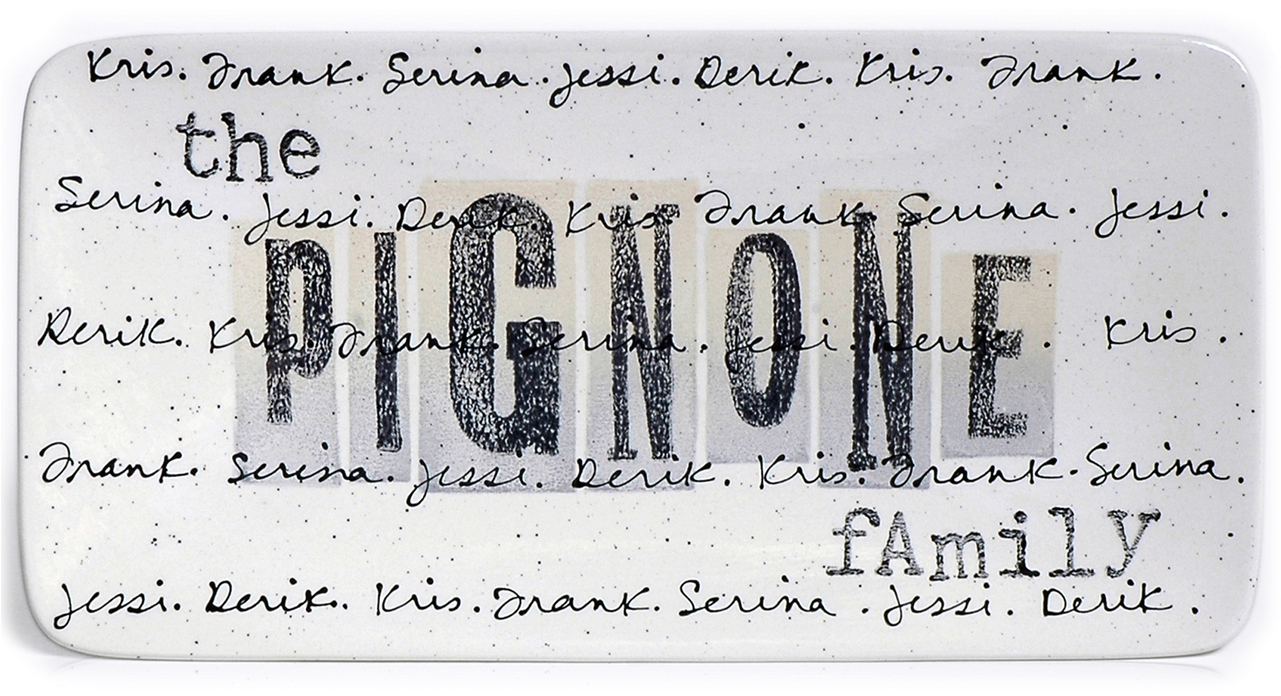 Kris. Frank. Serina. Jessi. Derik. Kris. Frank.
the
Serina. Jessi. Derik. Kris. Frank. Serina. Jessi.
PIGNONE
Derik. Kris. Frank. Serina. Jessi. Derik. Kris.
Frank. Serina. Jessi. Derik. Kris. Frank. Serina.
fAmily
Jessi. Derik. Kris. Frank. Serina. Jessi. Derik.